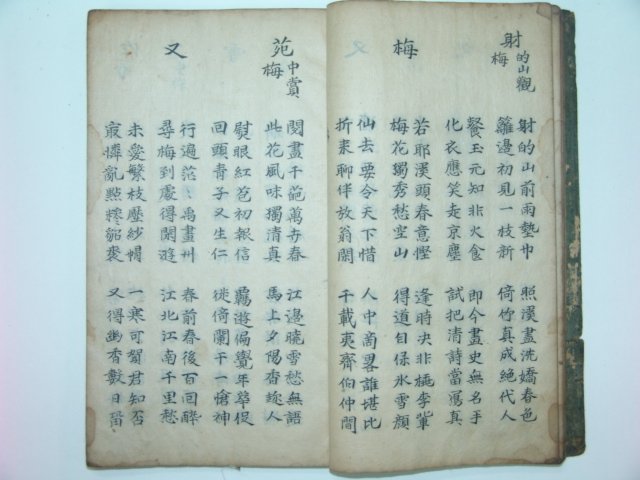 射的山觀梅
射的山前雨墊巾 照溪盡洗嬌春色
籬邊初見一枝新 倚竹真成絕代人
餐玉元知非火食 即今畫史無名手
化衣應笑走京塵 試把清詩當寫真
梅
若耶溪頭春意慳 逢時決非桃李輩
梅花獨秀愁空山 得道自保氷雪顔
仙去要令天下惜 人中商畧誰堪比
折來聊伴放翁閒 千載夷齊伯仲間
苑中賞梅
閱盡千葩萬卉春 江邊曉雪愁無語
此花風味獨清真 馬上夕陽香趂人
熨眼紅苞初報信 羈遊偏覺年華促
回頭青子又生仁 徙倚闌干一愴神
又
行遍茫〻禹畫州 春前春後百回醉
尋梅到處得閑遊 江北江南千里愁
未愛繁枝壓紗帽 一寒可賀君知否
最憐亂點糝貂裘 又得幽香數日留